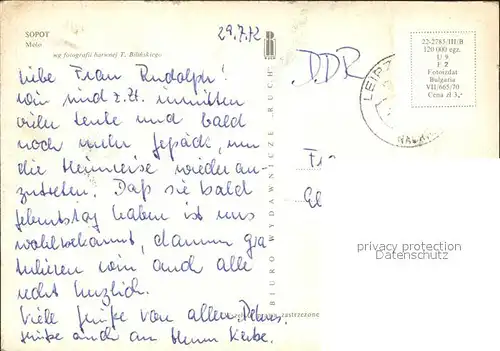 SOPOT
Molo
wg fotografii barwnej T. Bilińskiego
29.7.72
Liebe Frau Rudolph!
wir sind z.Zt. inmitten
vieler Leute und bald
noch mehr Gepäck, um
die Heimreise wieder an-
zutreten. Daß sie bald
Geburtstag haben ist uns
wohlbekannt, darum gra
tulieren wir auch alle
recht herzlich.
Viele Grüße von allen
Grüße auch an Herrn
BIURO WYDAWNICZE "RUCH"
zastrzeżone
DDR
LEIPZ
22-2785/III/B
120 000 egz.
U 9
F 2
Fotoizdat
Bulgaria
VII/665/70
Cena zł 3,-
privacy protection
AnsichtskartenVersand.com